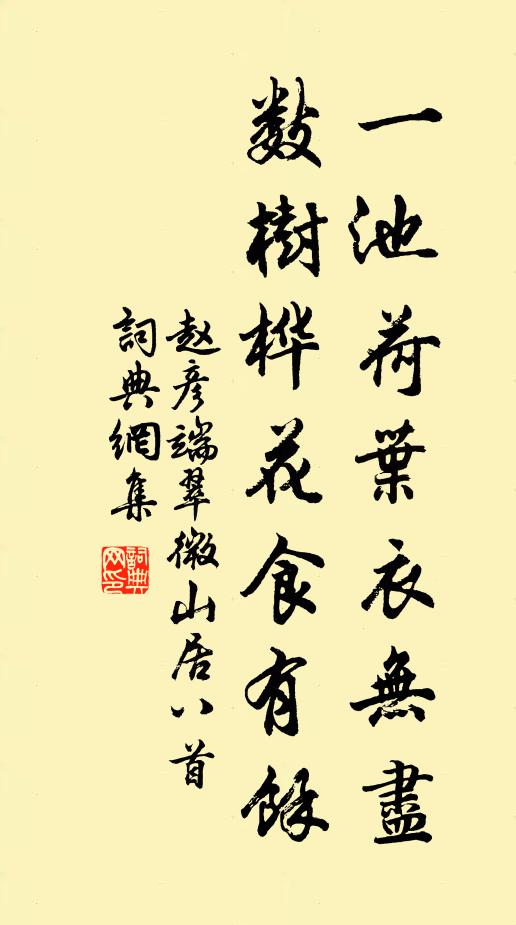 一池荷葉衣無盡
数樹桦花食有餘
赵彦端翠微山居八首
詞典網集
詞典网印